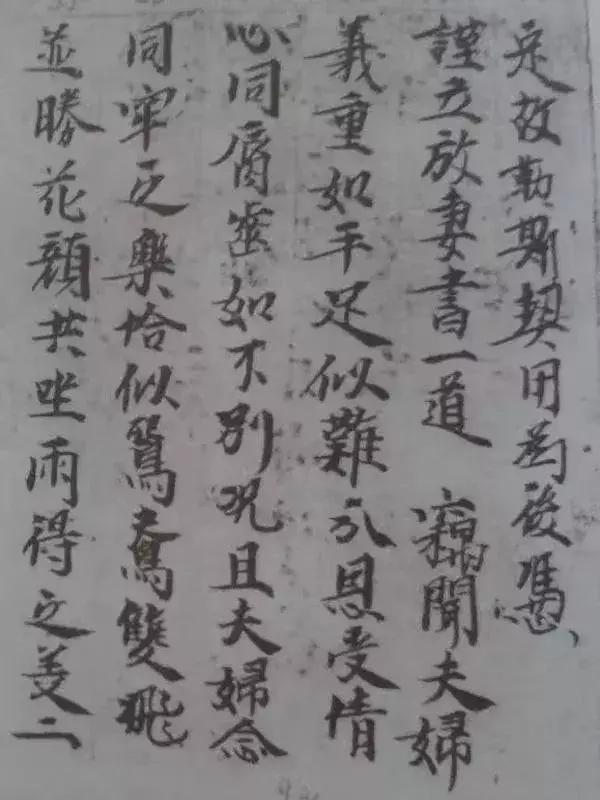 定故勒斯契用為後憑
謹立放妻書一道 竊聞夫婦
義重如手足似難分恩愛情
心同唇齒如不別况且夫婦念
同牢之樂恰似鴛鴦雙飛
並勝花顔共坐兩得之美二